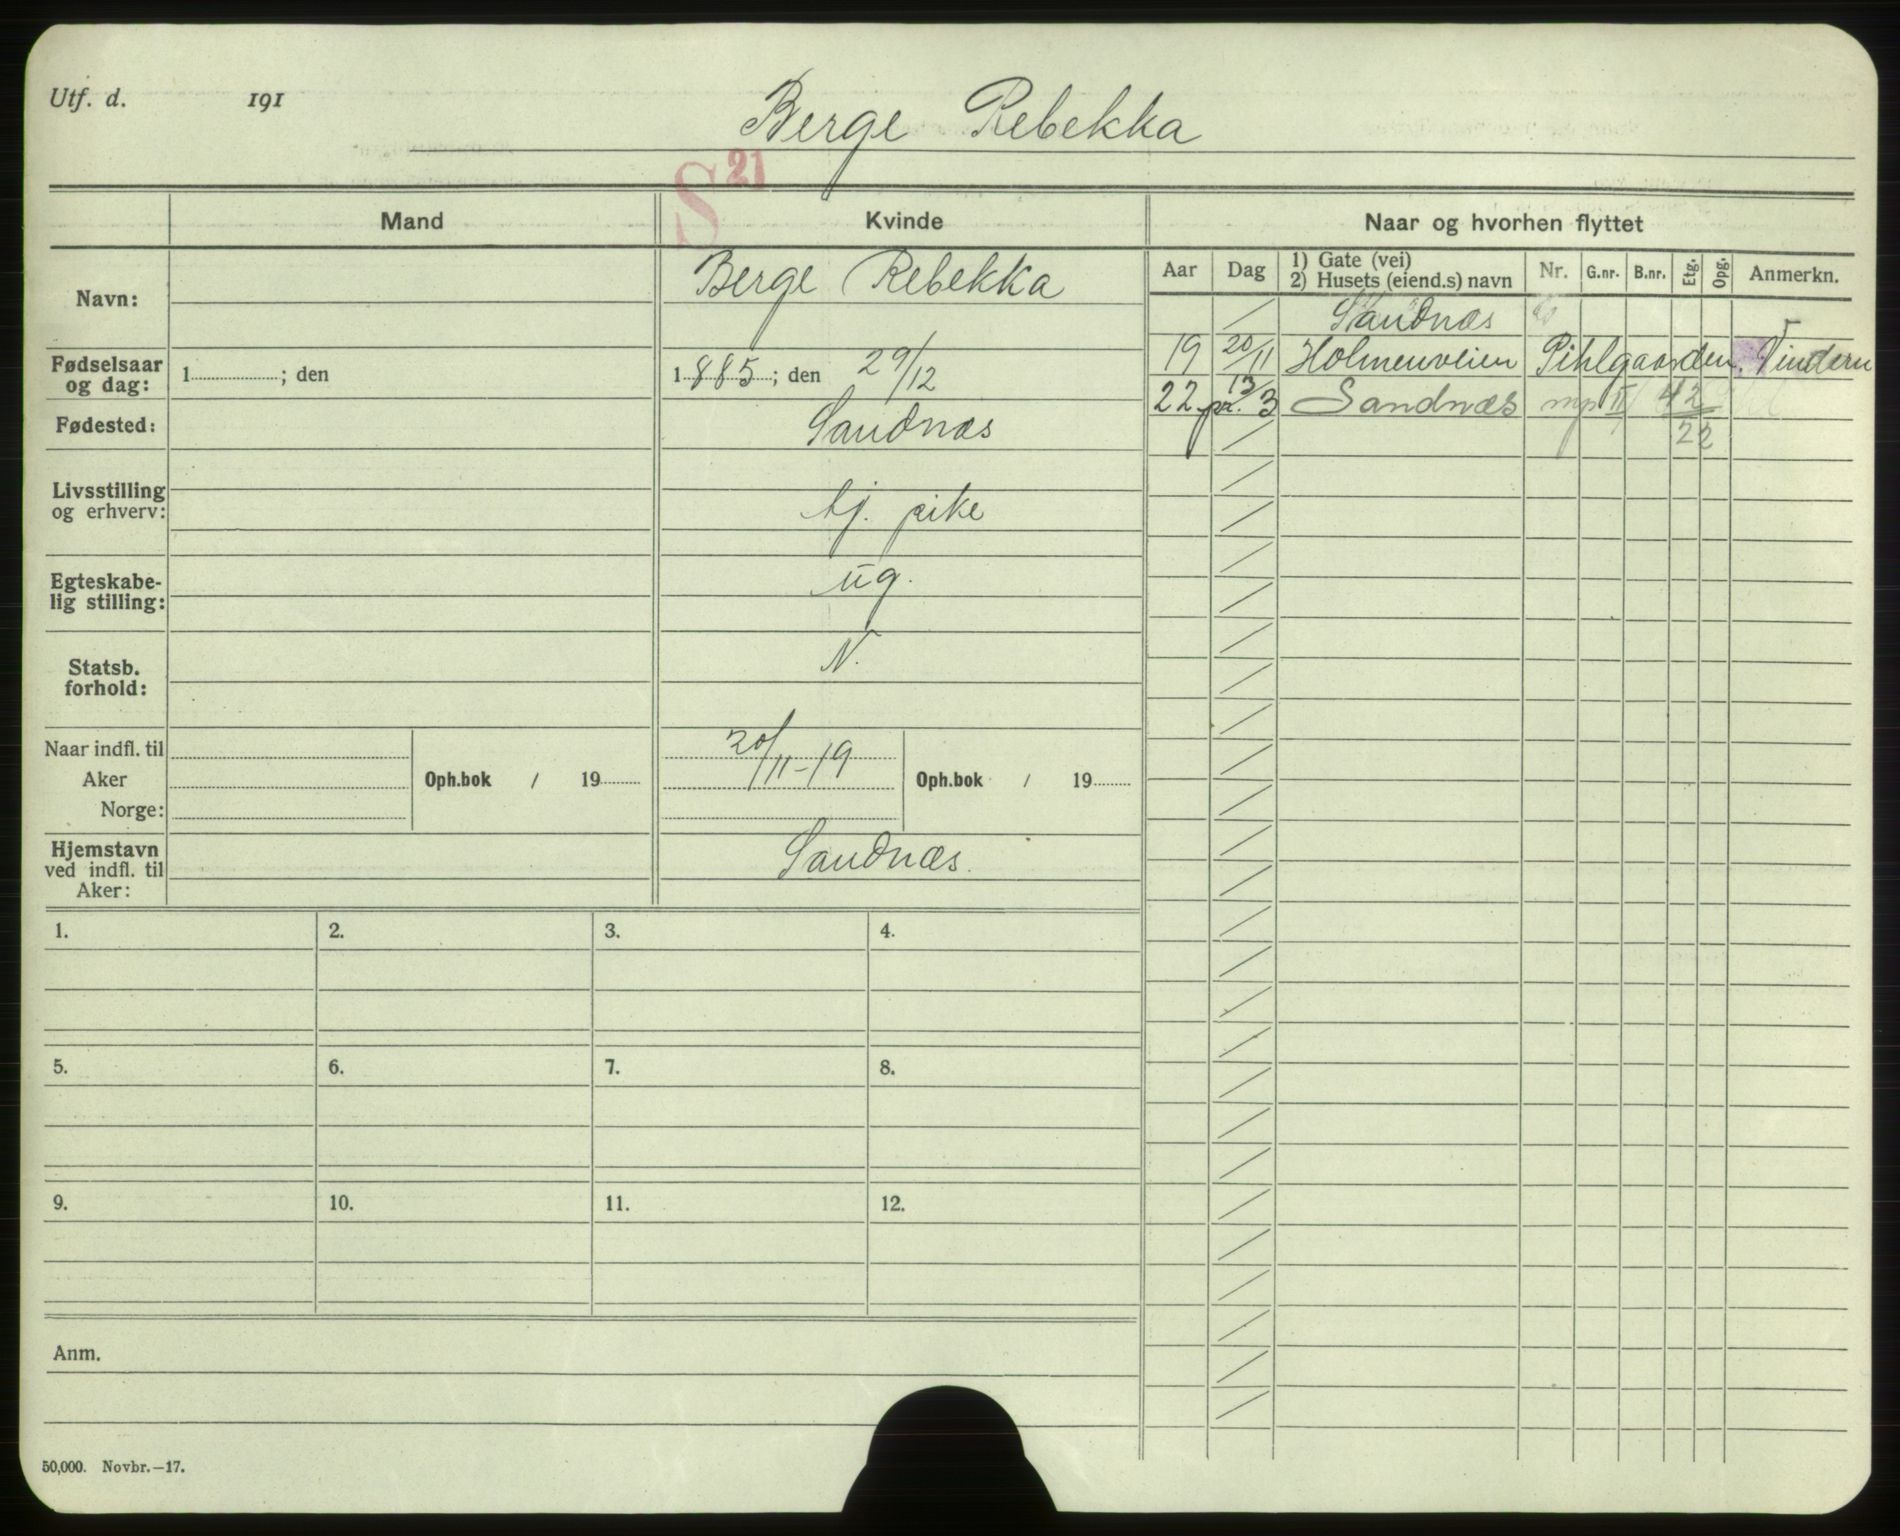 Utf. d. 191
Berge Rebekka
S 21
Mand Kvinde Naar og hvorhen flyttet
Aar Dag 1) Gate (vei) 2) Husets (eiend.s) navn Nr. G.nr. B.nr. Etg. Opg. Anmerkn.
Navn: Berge Rebekka
Sandnæs
19 20/11 Holmenveien Pihlgaarden. Vindern
22 pr. 13/3 Sandnæs mp II 42/22
Fødselsaar og dag: 1 ; den 1885; den 29/12
Fødested: Sandnæs
Livsstilling og erhverv: tj. pike
Egteskabe-
lig stilling: ug.
Statsb. forhold: N.
Naar indfl. til
Aker Oph.bok / 19 20/11-19 Oph.bok / 19
Norge:
Hjemstavn
ved indfl. til Sandnæs.
Aker:
1. 2. 3. 4.
5. 6. 7. 8.
9. 10. 11. 12.
Anm.
50,000. Novbr.—17.